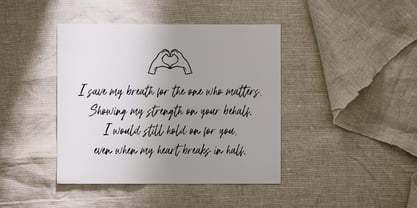 I save my breath for the one who matters.
Showing my strength on your behalf.
I would still hold on for you,
even when my heart breaks in half.